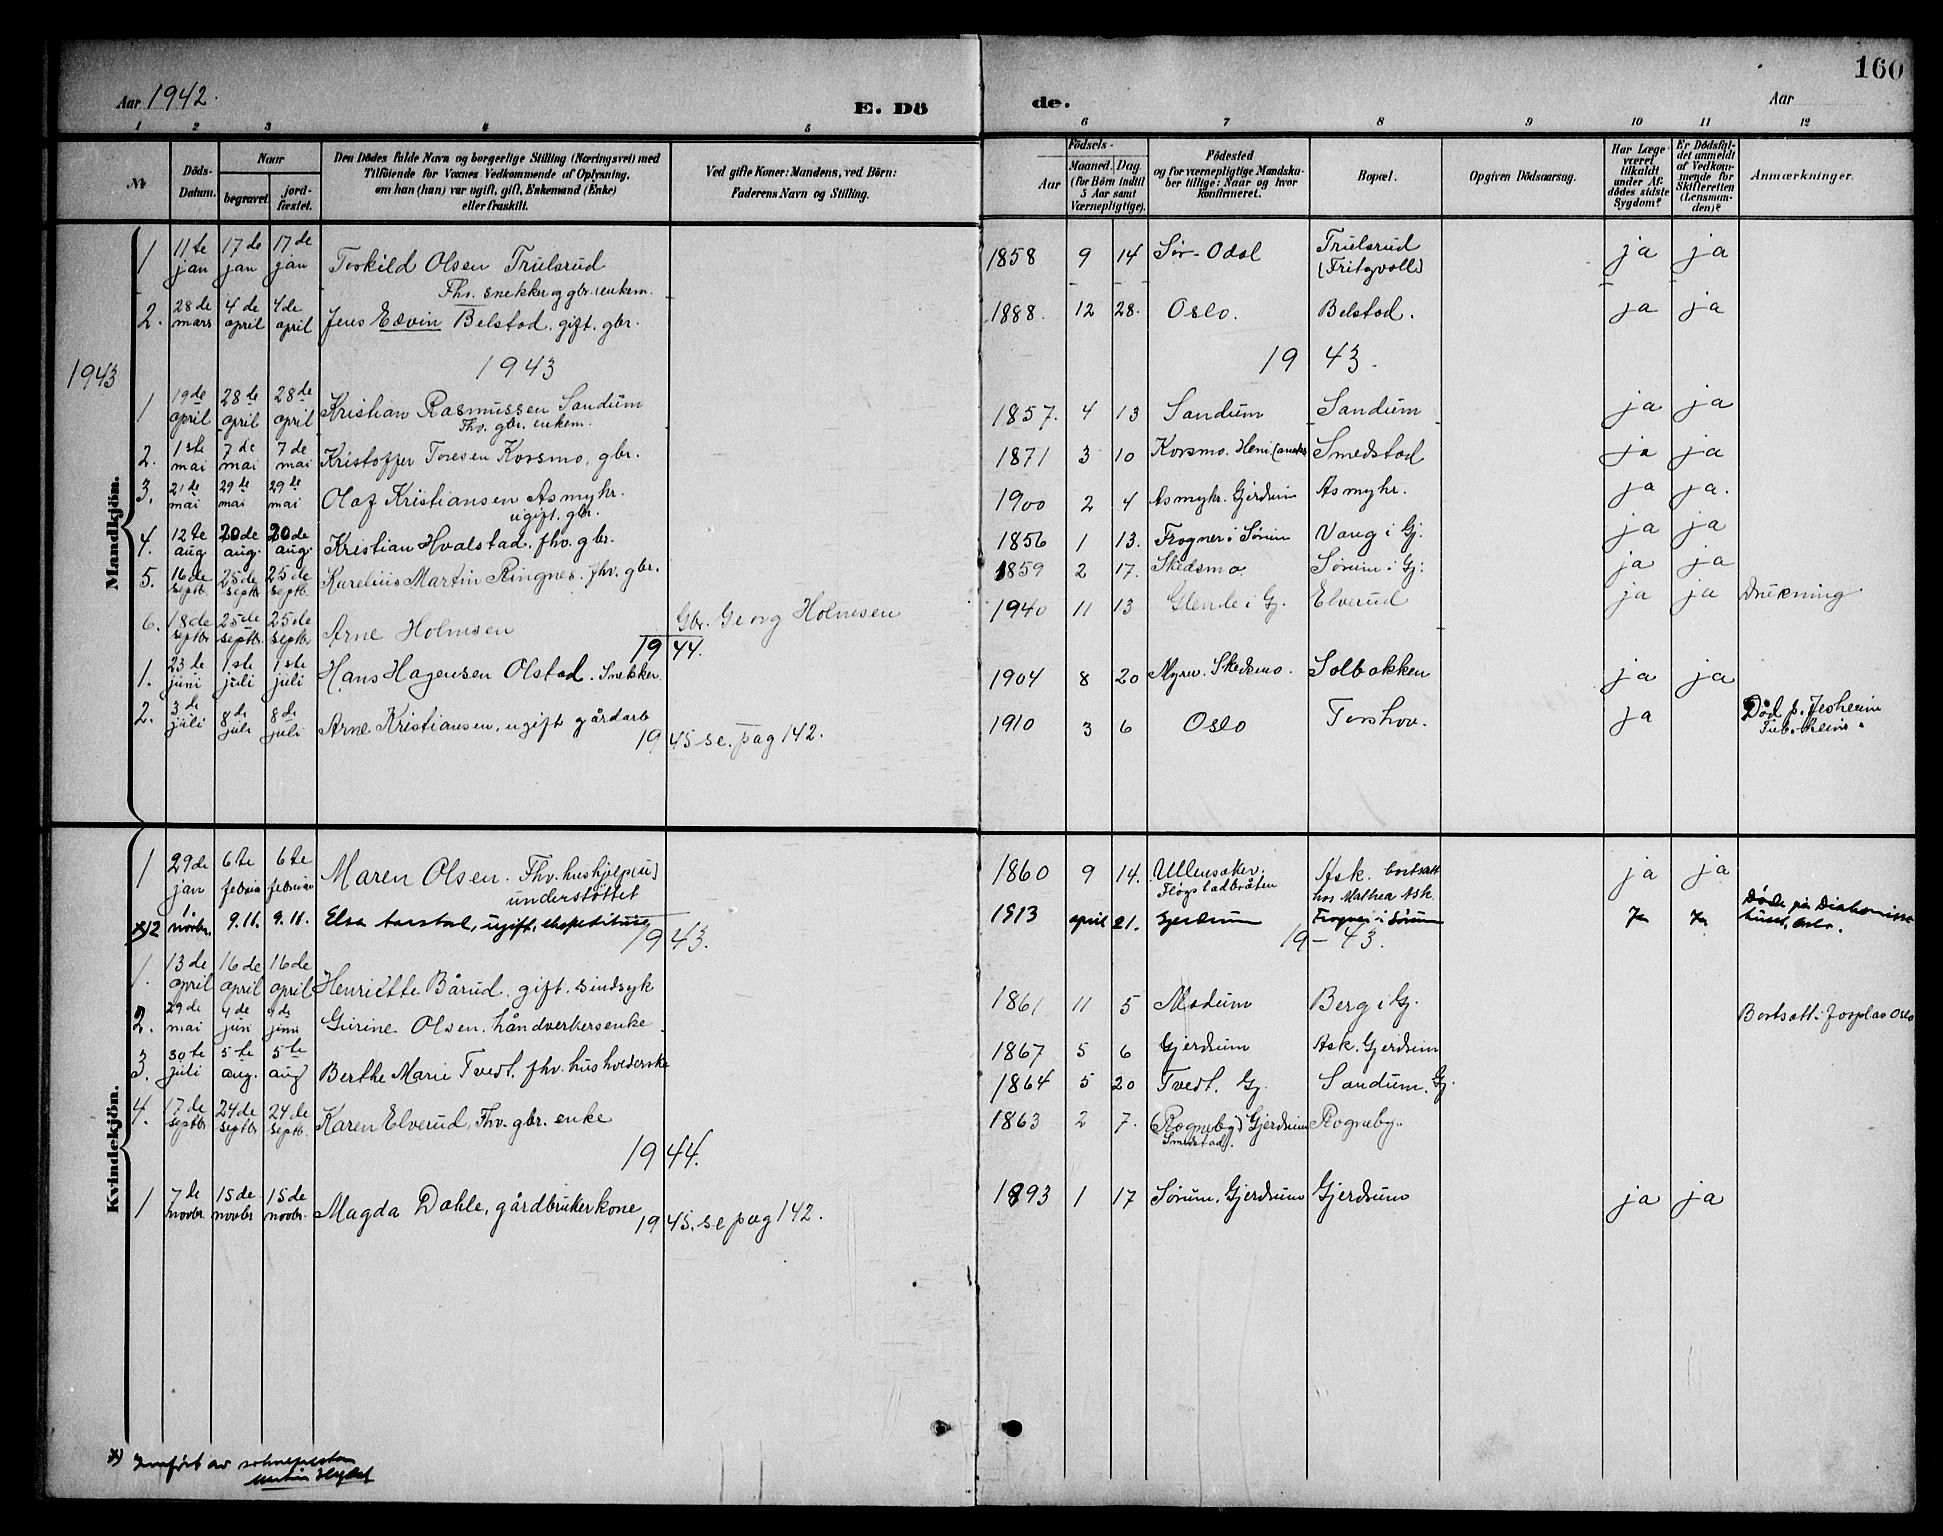 160
Aar 1942. E. Dö de. Aar
1 2 3 4 5 6 7 8 9 10 11 12
No.
Döds-Datum.
Naar
begravet.
jord-fæstet.
Den Dödes fulde Navn og borgerlige Stilling (Næringsvei) med
Tilföiende for Voxnes Vedkommende af Oplysning,
om han (hun) var ugift, gift, Enkemand (Enke)
eller fraskilt.
Ved gifte Koner: Mandens, ved Börn:
Faderens Navn og Stilling.
Födsels-
Aar
Maaned. Dag.
(for Börn indtil
3 Aar samt
Værnepligtige).
Födested
og for værnepligtige Mandska-
ber tillige: Naar og hvor
Konfirmeret.
Bopæl.
Opgiven Dödsaarsag.
Har Læge
været
tilkaldt
under Af-
dödes sidste
Sygdom?
Er Dödsfal-
det anmeldt
af Vedkom-
mende for
Skifteretten
(Lensman-
den)?
Anmærkninger.
Mandkjön.
1 11te jan 17de jan 17de jan Torkild Olsen Trulsrud 1858 9 14 Sør-Odal Trulsrud ja ja
Fhv. snekker og gbr. enkem. (Fritzvoll)
2. 28de mars 4de april 4de april Jens Edvin Belstad. gift. gbr. 1888. 12 28. Oslo. Belstad. ja ja
1943 1943 19 43.
1 19de april 28de april 28de april Kristian Rasmussen Sandum 1857. 4 13 Sandum Sandum ja ja
Fhv. gbr. enkem.
2. 1ste mai 7de mai 7de mai Kristoffer Toresen Korsmo, gbr. 1871 3 10 Korsmo. Smedstad ja ja
3. 21de mai 29de mai 29de mai Olaf Kristiansen Asmyhr. 1900 2 4 Asmyhr. Gjerdrum Asmyhr. ja ja.
ugift. gbr.
4. 12te aug 20de aug. 20de aug. Kristian Hvalstad. fhv. gbr. 1856 1 13. Frogner i Sørum Vang i Gj: ja ja
5. 16de septb. 25de septb. 25de septb. Kurelius Martin Ringnes. fhv. gbr. 1859 2 17. Skedsmo Sørum i Gj: ja ja
6. 18de septbr 25de septbr. 25de septbr. Arne Holmsen Gbr. Georg Holmsen 1940 11 13 i Gj. Elverud ja ja Drukning
19 44.
1. 23de juni 1ste juli 1ste juli Hans Hagensen Olstad. Snekker. 1904 8 20 Myrer. Skedsmo. Solbakken ja ja
2. 3de juli 8de juli 8de juli Arne Kristiansen, ugift gårdarb 1910 3 6 Oslo Torshov. ja Død p. Jesheim
Tub. heim.
19 45 se. pag 142.
Kvindekjön.
1 29de jan 6te februar 6te februar Maren Olsen. Fhv. hushjelp(u) 1860 9 14. Ullensaker. Ask. bortsatt ja ja
understöttet Fløgstadbråten hos Mathea Ask.
x)2 1. novbr. 9.11. 9.11. Elsa Aarstad, ugift, ekspeditrise, 1913 april 21. Gjerdrum Frogner i Sörum Ja Ja Döde på Diakonisse
huset, Oslo.
19 43. 19 - 43.
1. 13de april 16de april 16de april Henriette Bårud. gift. sindsyk 1861 11 5 Modum Berg i Gj. Bortsatt i forpl av Oslo
2. 29de mai 4de juni 4de juni Gurine Olsen. håndverkersenke. 1867 5 6 Gjerdrum Ask. Gjerdrum
3. 30te juli 5te aug. 5te aug Berthe Marie Tvedt. fhv. husholderske 1864 5 20 Tvedt. Gj. Sandum. Gj.
4. 17de septbr 24de septbr 24de septb. Karen Elverud, Fhv. gbr. enke 1863 2 7. (Rogneby) Gjerdrum Rogneby.
Smedstad).
19 44.
1 7de novbr 15de novbr 15de novbr. Magda Dahle, gårdbrukerkone 1893 1 17 Sørum, Gjerdrum Gjerdrum ja ja
19 45. se pag 142.
x) Innfört av soknepresten